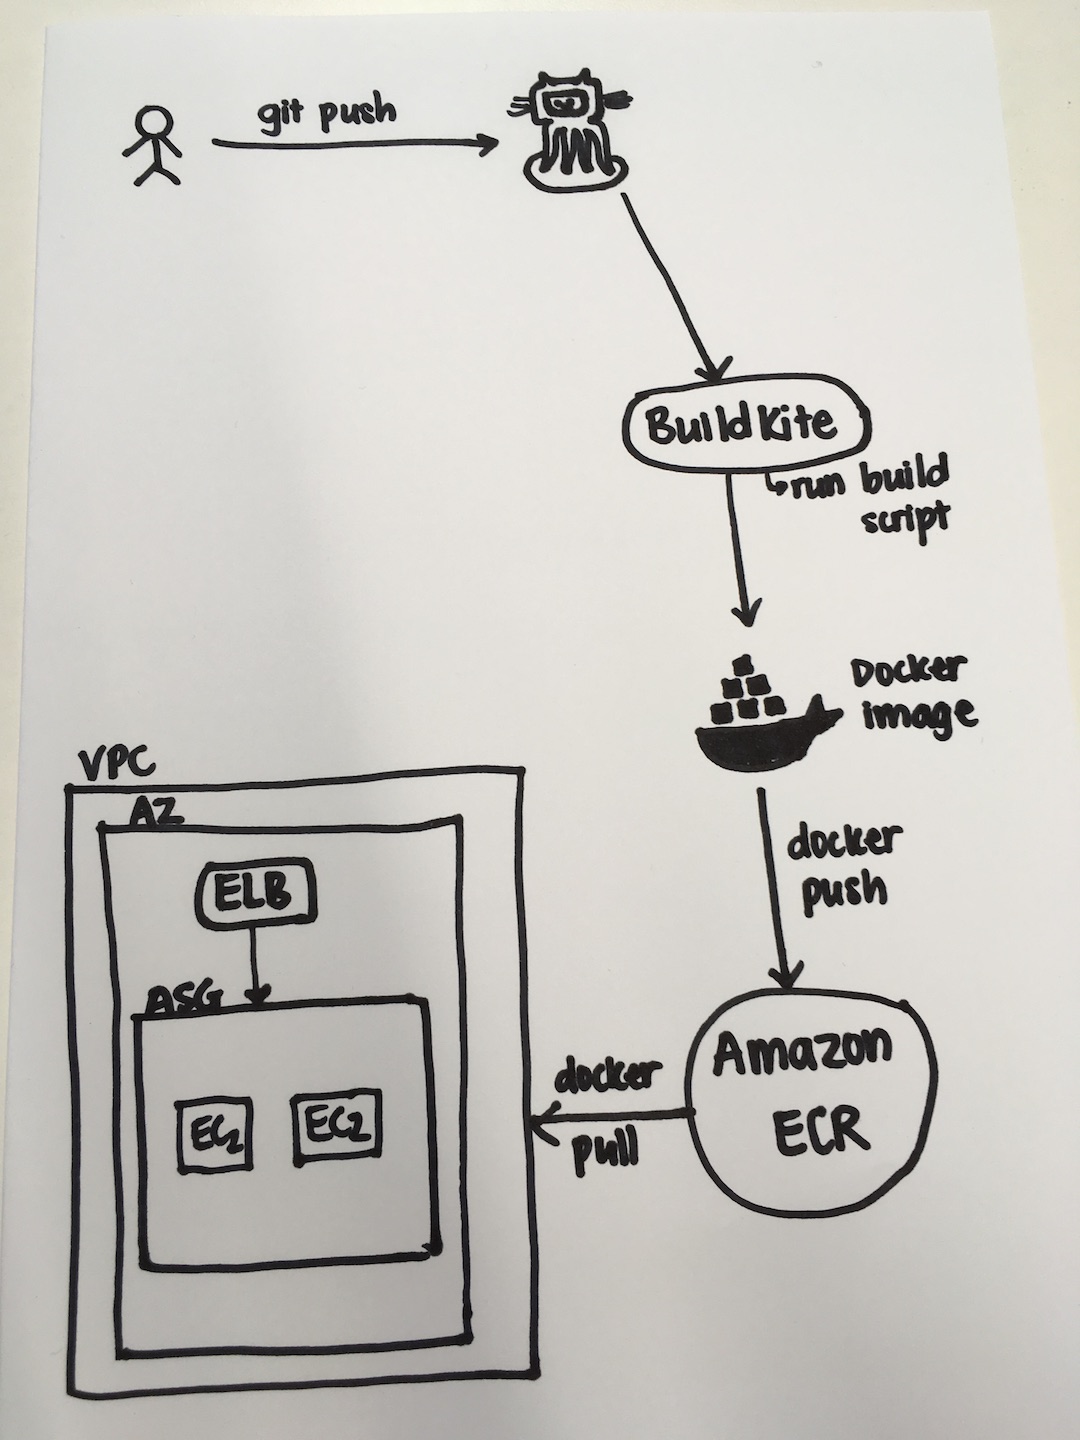 git push
BuildKite
↳run build
script
Docker
image
docker
push
Amazon
ECR
docker
pull
VPC
AZ
ELB
ASG
EC2
EC2